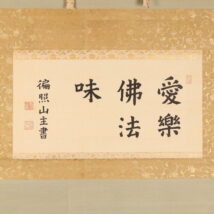 愛樂
佛法
味
徧照山主書